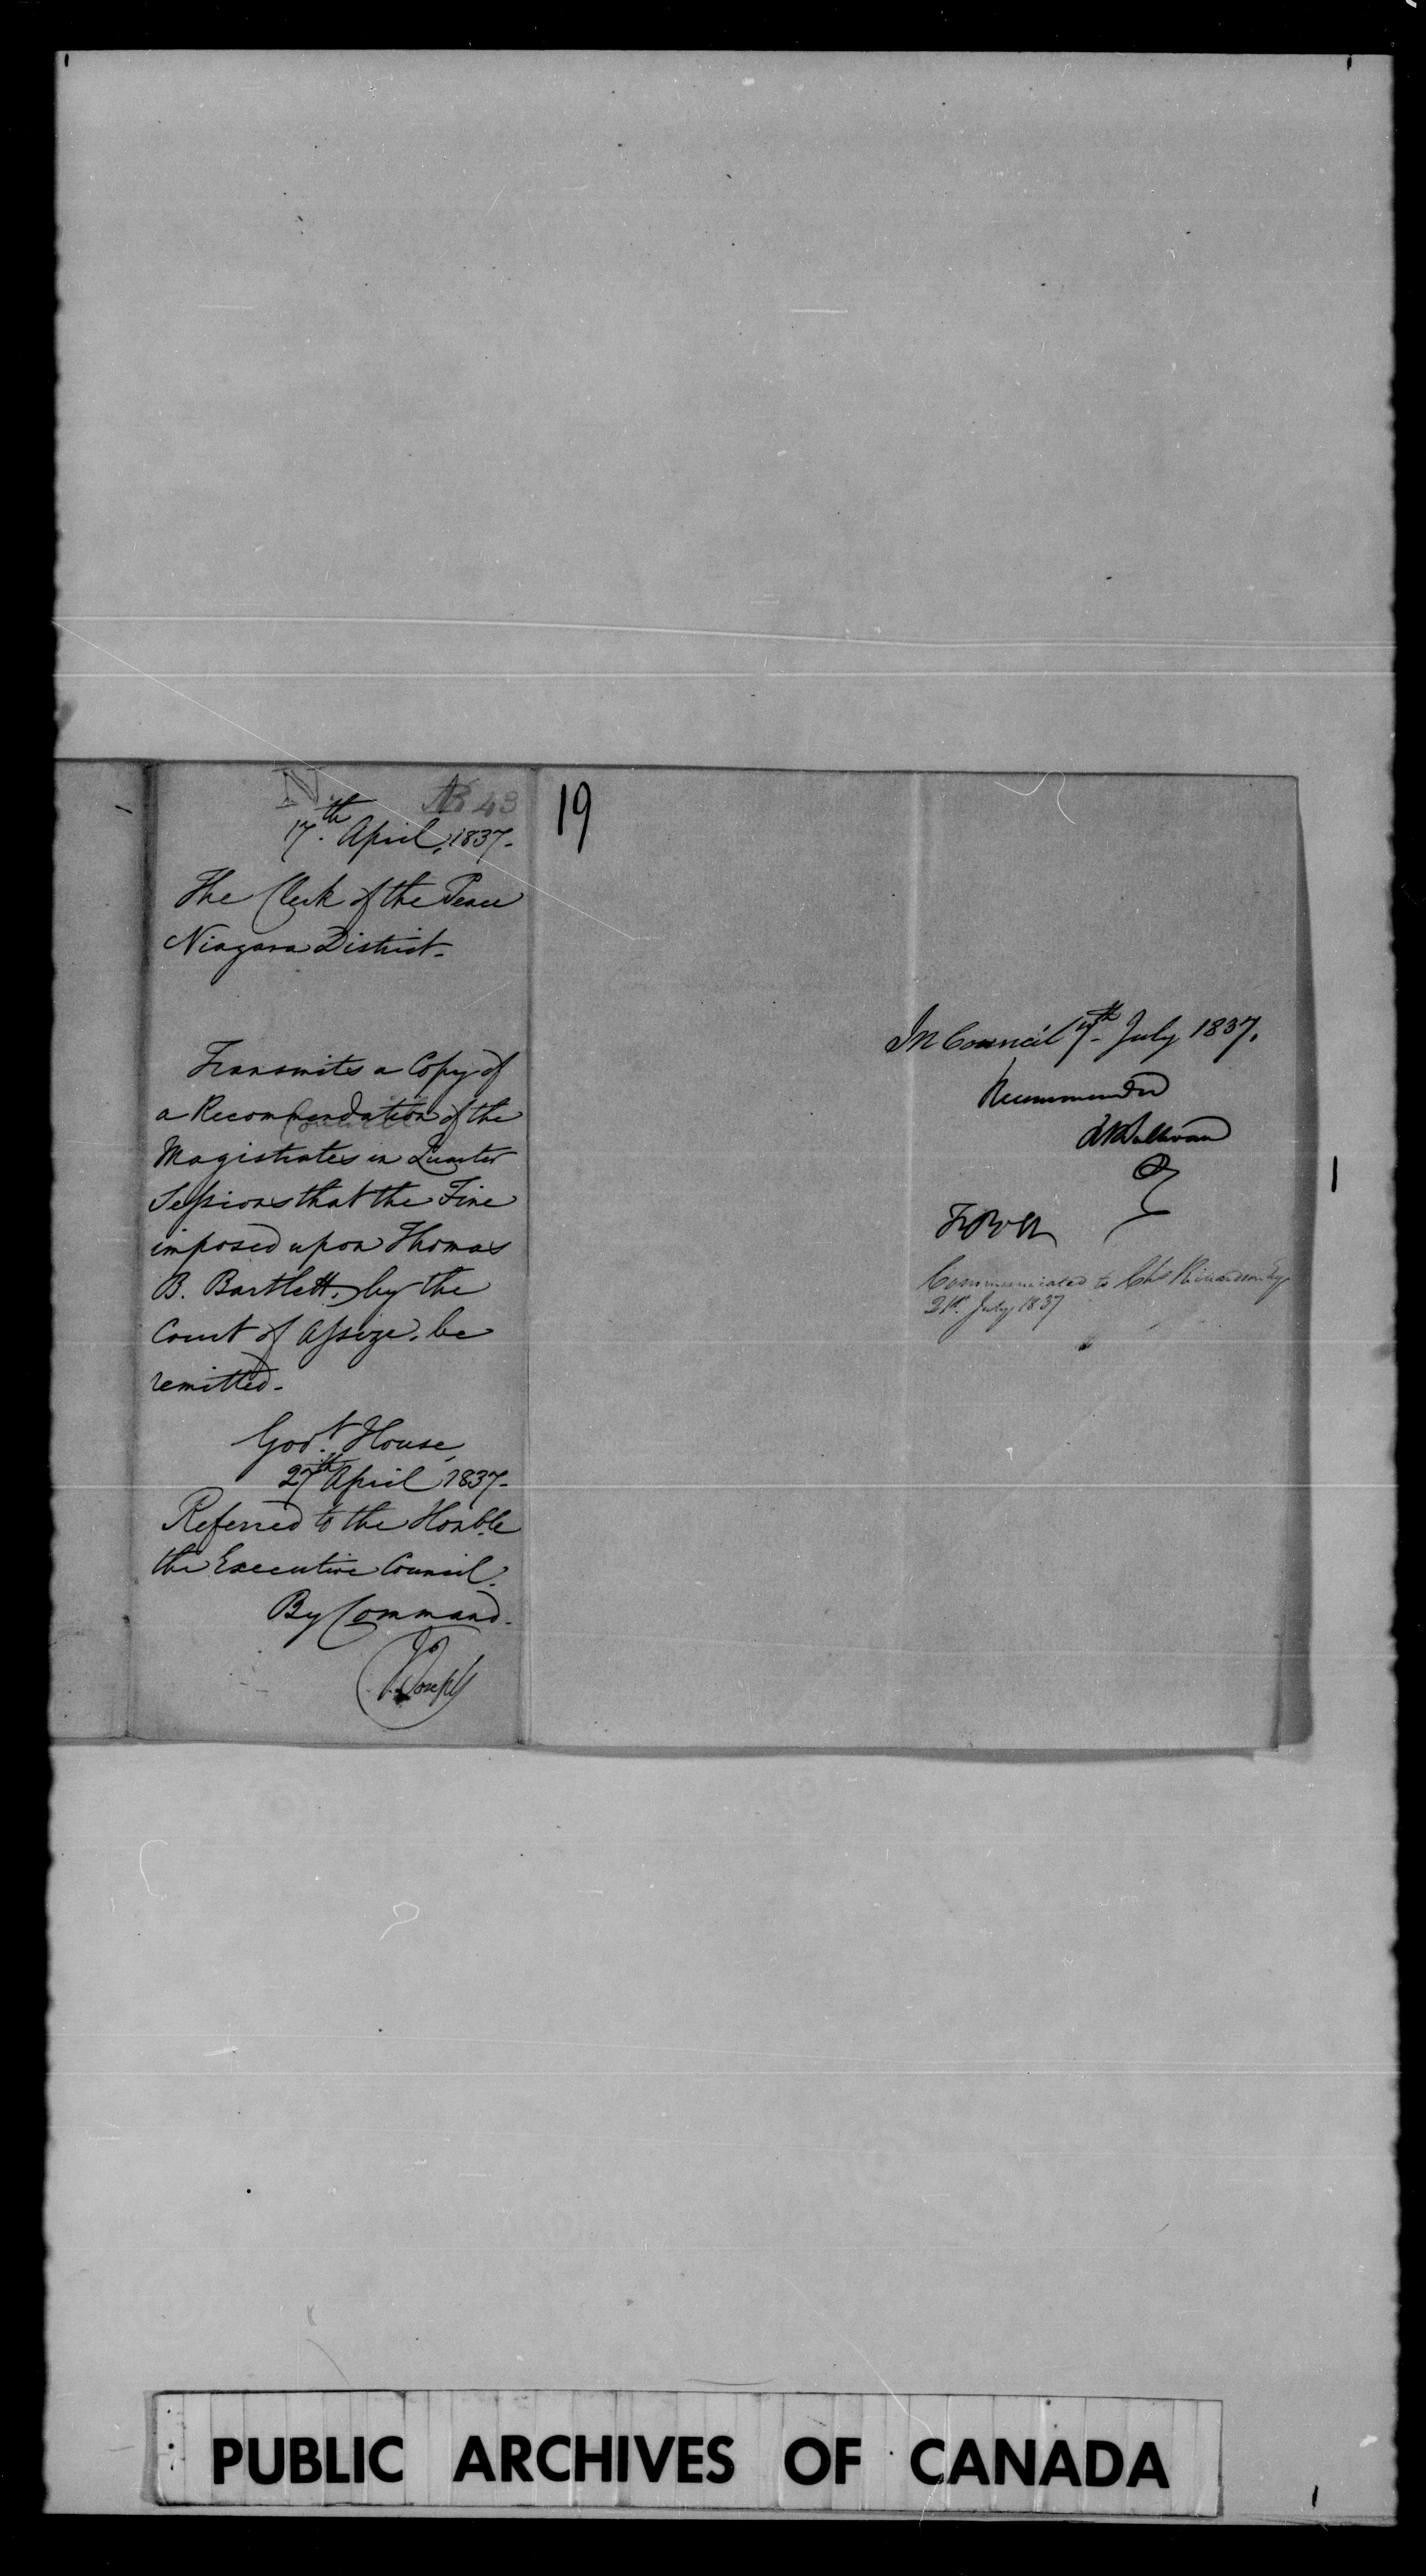 N.
No 43
17th April, 1837-
The Clerk of the Peace
Niagara District-
Transmits a Copy of
a Recommendation of the
Magistrates in Quarter
Sessions that the Fine
imposed upon Thomas
B. Bartlett, by the
Court of Assize, be
remitted-
Govt. House,
27th April 1837-
Referred to the Honble
the Executive Council.
By Command.
J. Joseph
19
In Council 7th July 1837.
Recommended
RBSullivan
Communicated to Chs Richardson Esq
21st July 1837
PUBLIC ARCHIVES OF CANADA